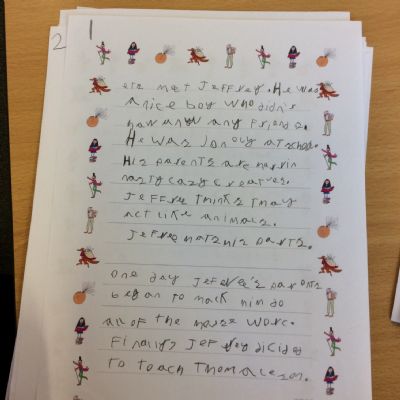 2
1
ets met Jeffrey. He was
a nice boy who didn't
have any any Friends.
He was lonely at school.
His parents are
nasty cazy creatures.
Jeffree thinks thay
act like animals.
Jeffree hats his parts.
one day Jeffree's parents
began to mack him do
all of the house worc.
Finally, Jeffrey dicided
to teach them a leson.